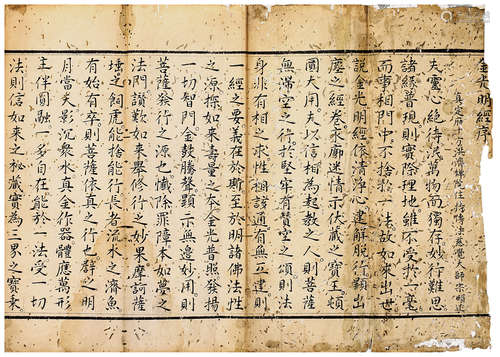 金光明經序
真定府十方洪濟禪院住持傳法慈覺大師宗賾述
夫靈心絕待混萬物而獨存妙行難思
諸經普現則實際理地雖不受於一毫
而事相門中不捨於一法故如來出世
說金光明經依清淨心建解脫行顯出
塵之經卷求廓迷情示伏藏之寶王頓
圓大用夫以信相為起教之人則菩薩
無滯空之行於堅牢有讚空之頌則法
身非有相之求性相該通有無互建則
一經之要義在於斯至於明諸佛法性
之源探如來壽量之本金光普照發揚
一切智門金鼓騰聲顯示無邊妙用則
菩薩發行之源也懺除罪障本如夢之
法門讚歎如來舉修行之妙果摩訶薩
埵之飼虎能捨能行長者流水之濟魚
有始有卒則菩薩依真之行也群之明
月當天影沉眾水真金作器體應萬形
主伴圓融一多自在能於一法受一切
法則信如來之秘藏實為三界之寶乘